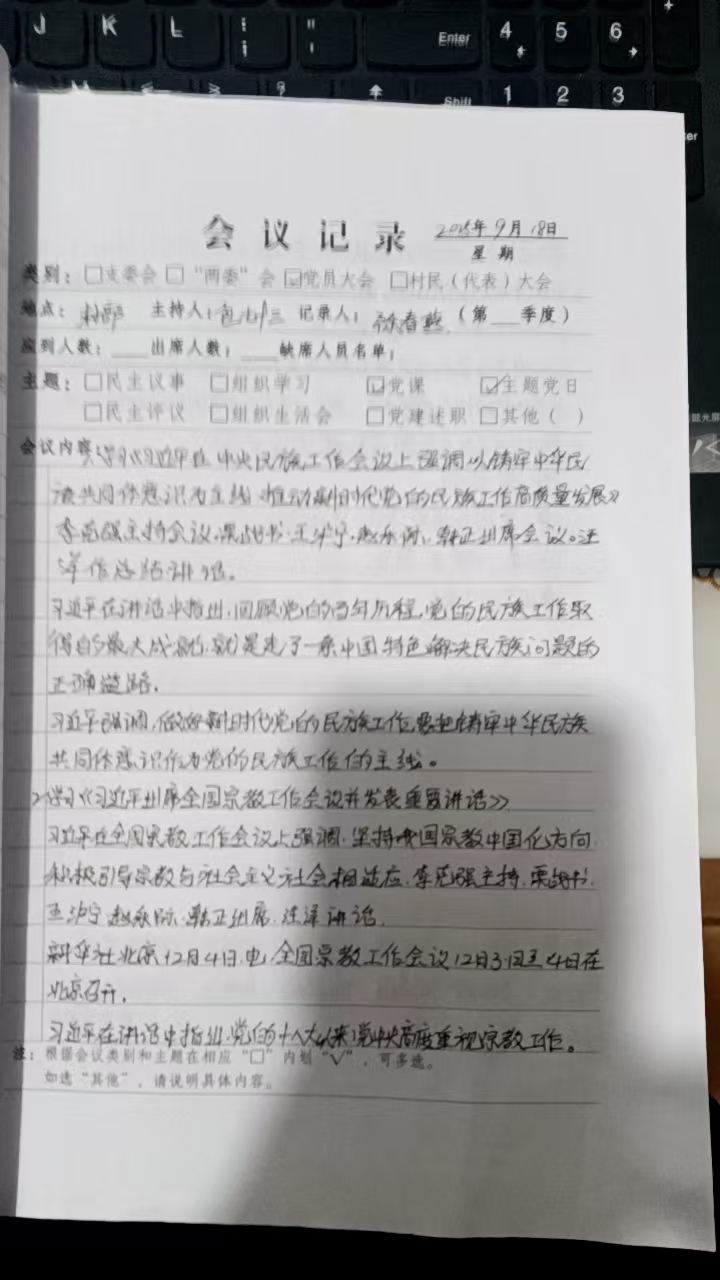 J K L ; : " ' Enter 4 5 6
? ↑ Shift 1 2 3
会议记录 2025年9月18日
星期
类别：☐支委会 ☐“两委”会 ☑党员大会 ☐村民（代表）大会
地点：村部 主持人： 记录人： （第__季度）
应到人数：___出席人数：___缺席人员名单：
主题：☐民主议事 ☐组织学习 ☑党课 ☑主题党日
☐民主评议 ☐组织生活会 ☐党建述职 ☐其他（ ）
会议内容：1、学习《习近平在中央民族工作会议上强调以铸牢中华民
族共同体意识为主线 推动新时代党的民族工作高质量发展》
李克强主持会议.栗战书.王沪宁.赵乐际.韩正出席会议。汪
洋作总结讲话。
习近平在讲话中指出,回顾党的百年历程,党的民族工作取
得的最大成就,就是走了一条中国特色解决民族问题的
正确道路.
习近平强调,做好新时代党的民族工作,要把铸牢中华民族
共同体意识作为党的民族工作的主线。
2、学习《习近平出席全国宗教工作会议并发表重要讲话》
习近平在全国宗教工作会议上强调.坚持我国宗教中国化方向
积极引导宗教与社会主义社会相适应.李克强主持.栗战书.
王沪宁.赵乐际.韩正出席.汪洋讲话.
新华社北京12月4日.电.全国宗教工作会议12月3日至4日在
北京召开.
习近平在讲话中指出,党的十八大以来党中央高度重视宗教工作。
注：根据会议类别和主题在相应“☐”内划“√”，可多选。
如选“其他”，请说明具体内容。